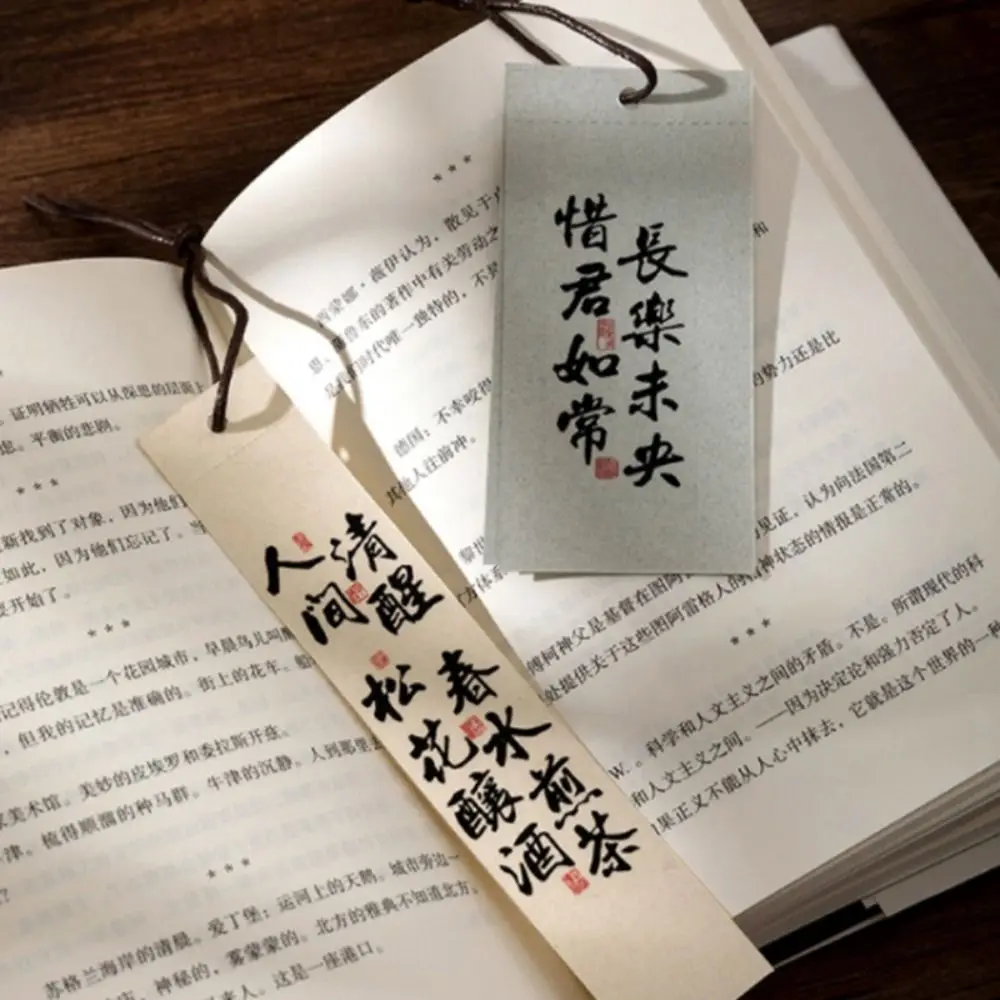 惜君如常
長樂未央
人间
清醒
松花釀酒
春水煎茶
***
证明牺牲可以从深思的层面上
虑。平衡的悲剧。
***
新找到了对象，因为他们
如此，因为他们忘记了。当
要开始了。
***
记得伦敦是一个花园城市，早晨鸟儿叫醒
，但我的记忆是准确的。街上的花车。船
家美术馆。美妙的皮埃罗和委拉斯开兹。人到那里
津。梳得顺溜的种马群。牛津的沉静。
?
***
苏格兰海岸的清晨。爱丁堡：运河上的天鹅。城市旁边一
神秘的，雾蒙蒙的。北方的雅典不知道北方。
来人。这是一座港口。
***
西蒙娜·薇伊认为，散见于卢
思、蒲鲁东的著作中有关劳动之
是我们时代唯一独特的，不是
和
德国：不幸咬得
的势力还是比
其他人往前冲。
黎世
的见证，认为向法国第二
方体系
傅柯神父是基督在图阿
的精神状态的情报是正常的。
处提供关于这些图阿雷格人的
***
科学和人文主义之间的矛盾。不是。所谓现代的科
W.
科学和人文主义之间。——因为决定论和强力否定了人。
如果正义不能从人心中抹去，它就是这个世界的一种